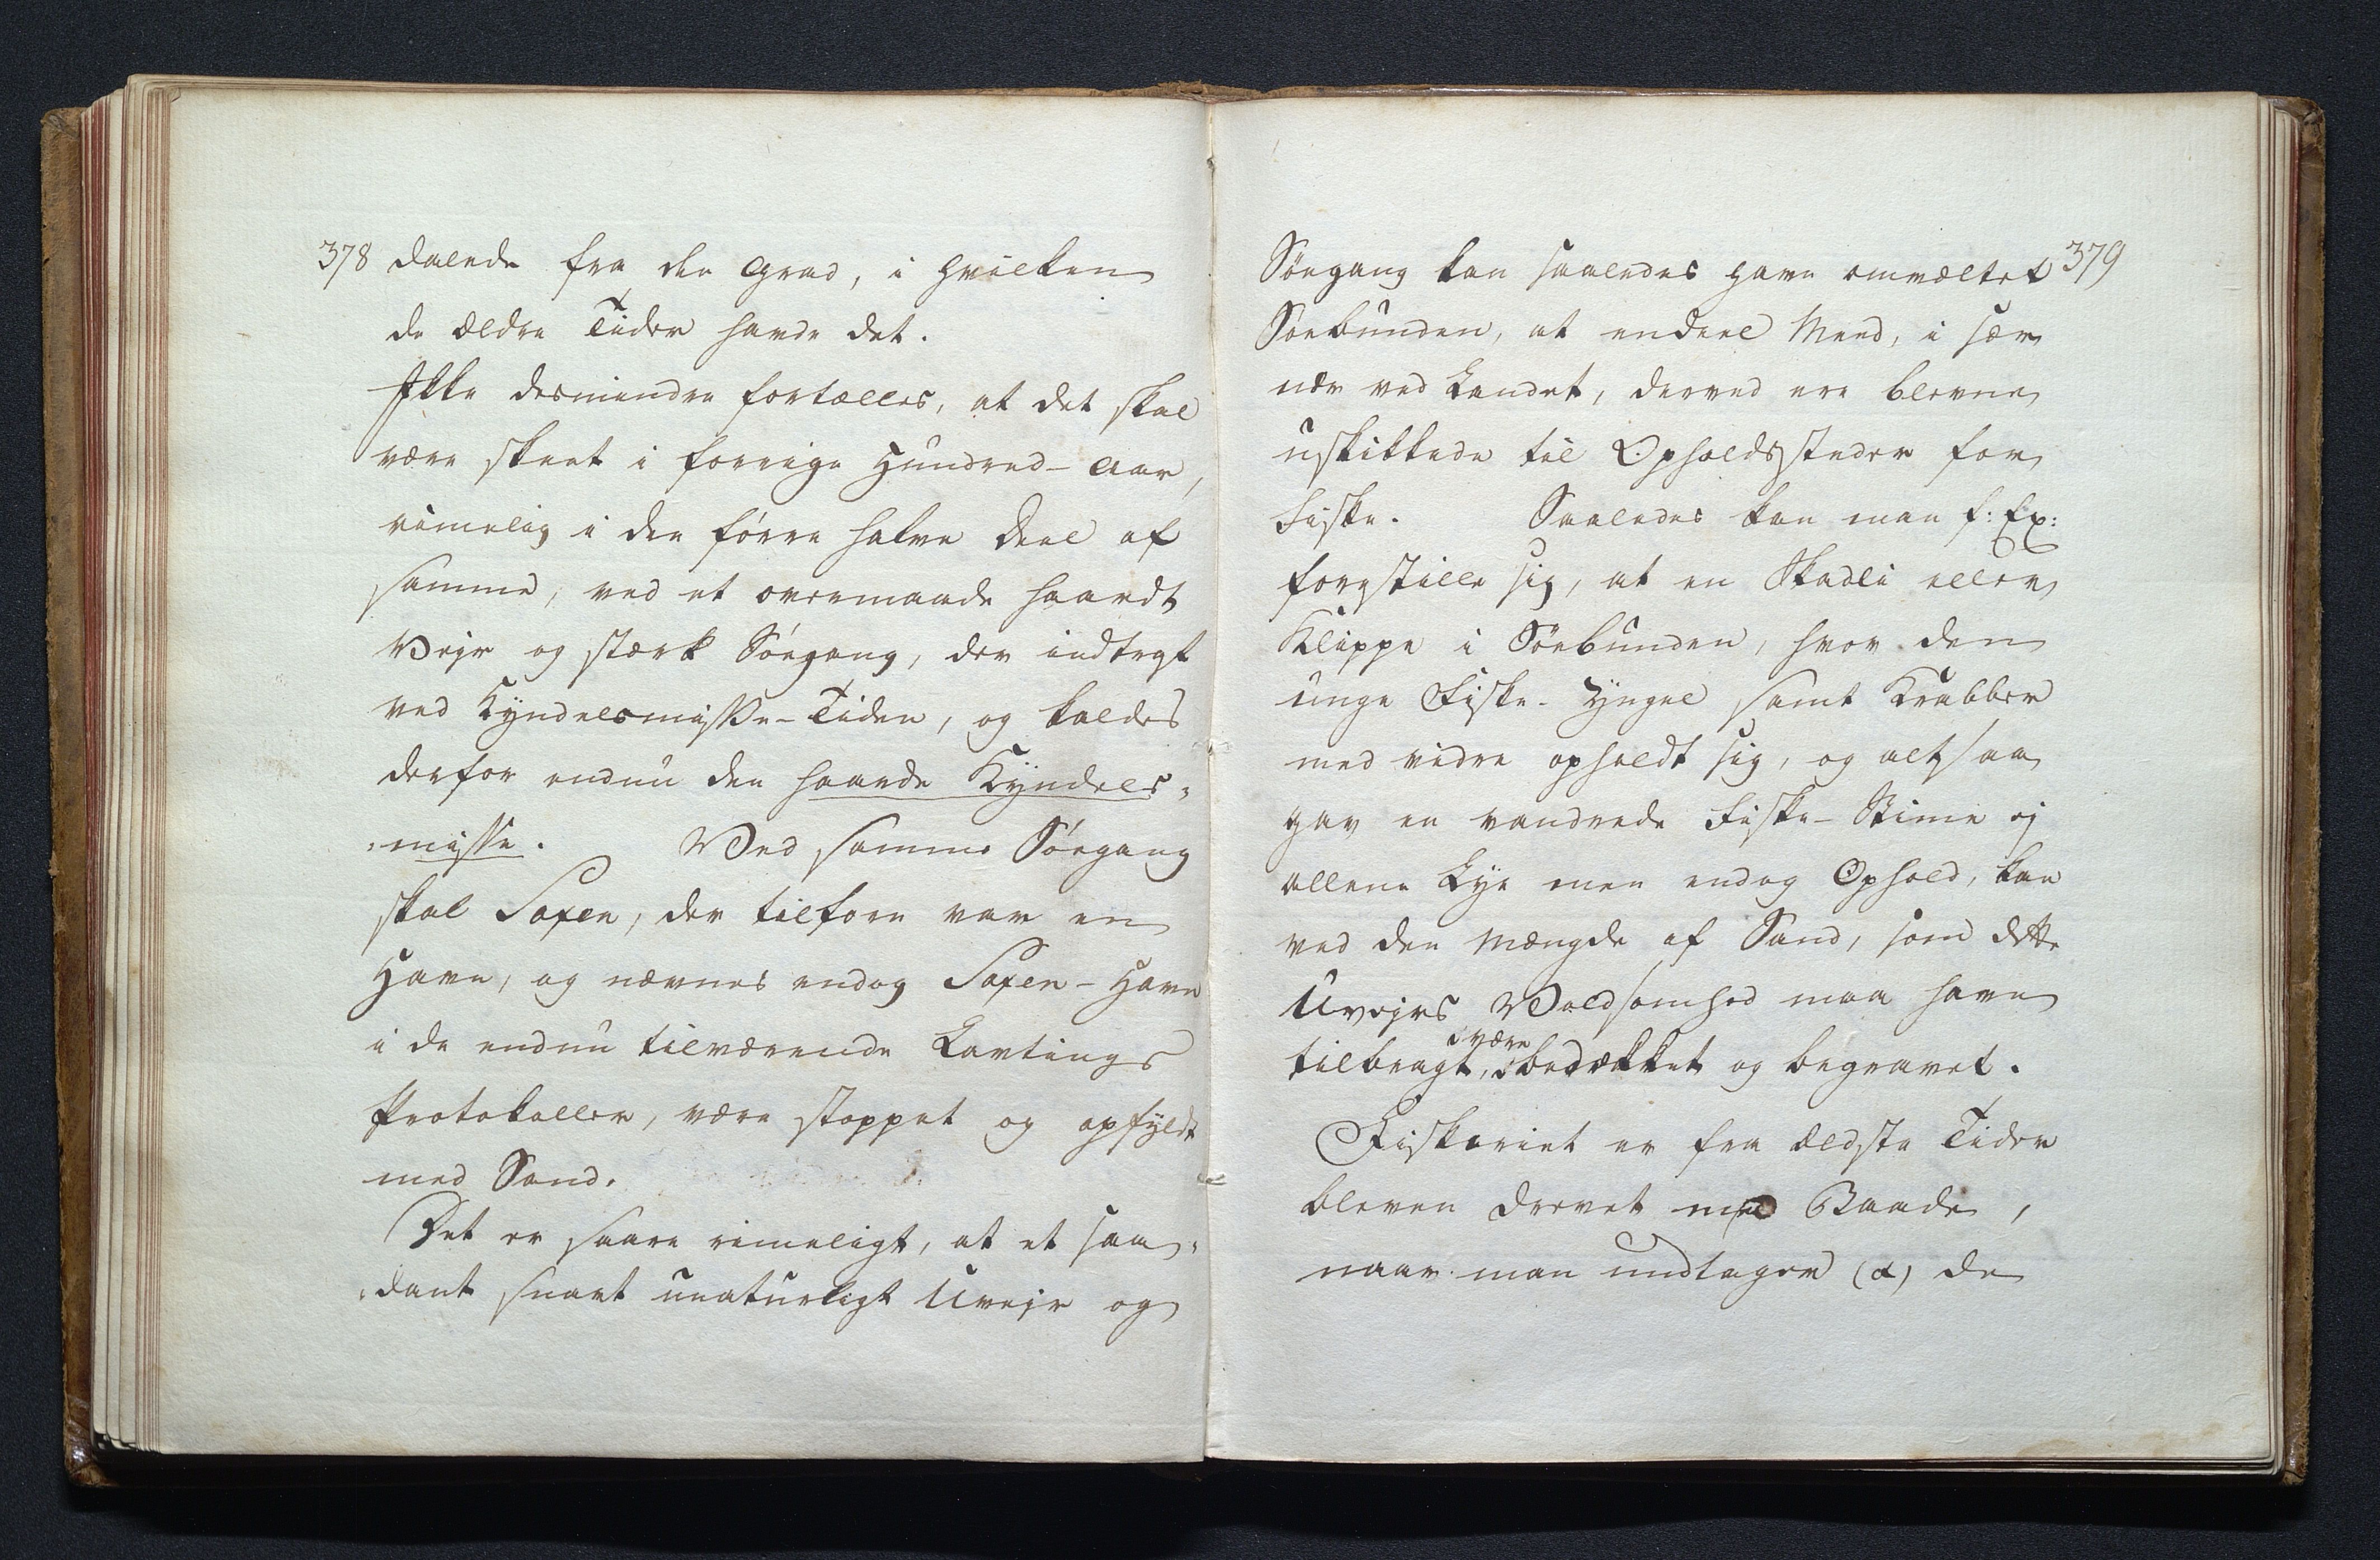 378 dalende fra den Grad, i hvilken
de ældre Tider havde det.
Ikke desmindre fortælles, at det skal
være skeet i forrige Hundred-Aar,
rimelig i den förre halve Deel af
samme, ved et overmaade haardt
Vejr og stærk Söegang, der indtraf
ved Kyndelsmisse-Tiden, og kaldes
derfor endnu den haarde Kyndels-
-misse. Ved samme Söegang
skal Saxen, der tilforn var en
Havn, og nævnes endog Saxen-Havn
i de endnu tilværende Lavtings
Protokoller, være stoppet og opfyldt
med Sand.
Det er saare rimeligt, at et saa-
-dant snart unaturligt Uvejr og
Söegang kan saaledes have omvæltet 379
Söebunden, at endeel Meed, i sær
nær ved Landet, derved ere blevne
uskikkede til Opholdssteder for
Fiske. Saaledes kan man f: Ex:
forestille sig, at en Skadli eller
Klippe i Söebunden, hvor den
unge Fiske-Yngel samt Krabber
med videre opholdt sig, og altsaa
gav en vandrede Fiske-Stime ej
allene Lye men endog Ophold, kan
ved den Mængde af Sand, som dette
Uvejrs Voldsomhed maa have
tilbragt, være bedækket og begravet.
Fiskeriet er fra ældste Tider
bleven drevet med Baade,
naar man undtager (a) de